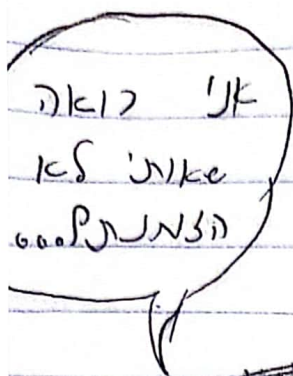 אני רואה
שאותי לא
הזמנת...